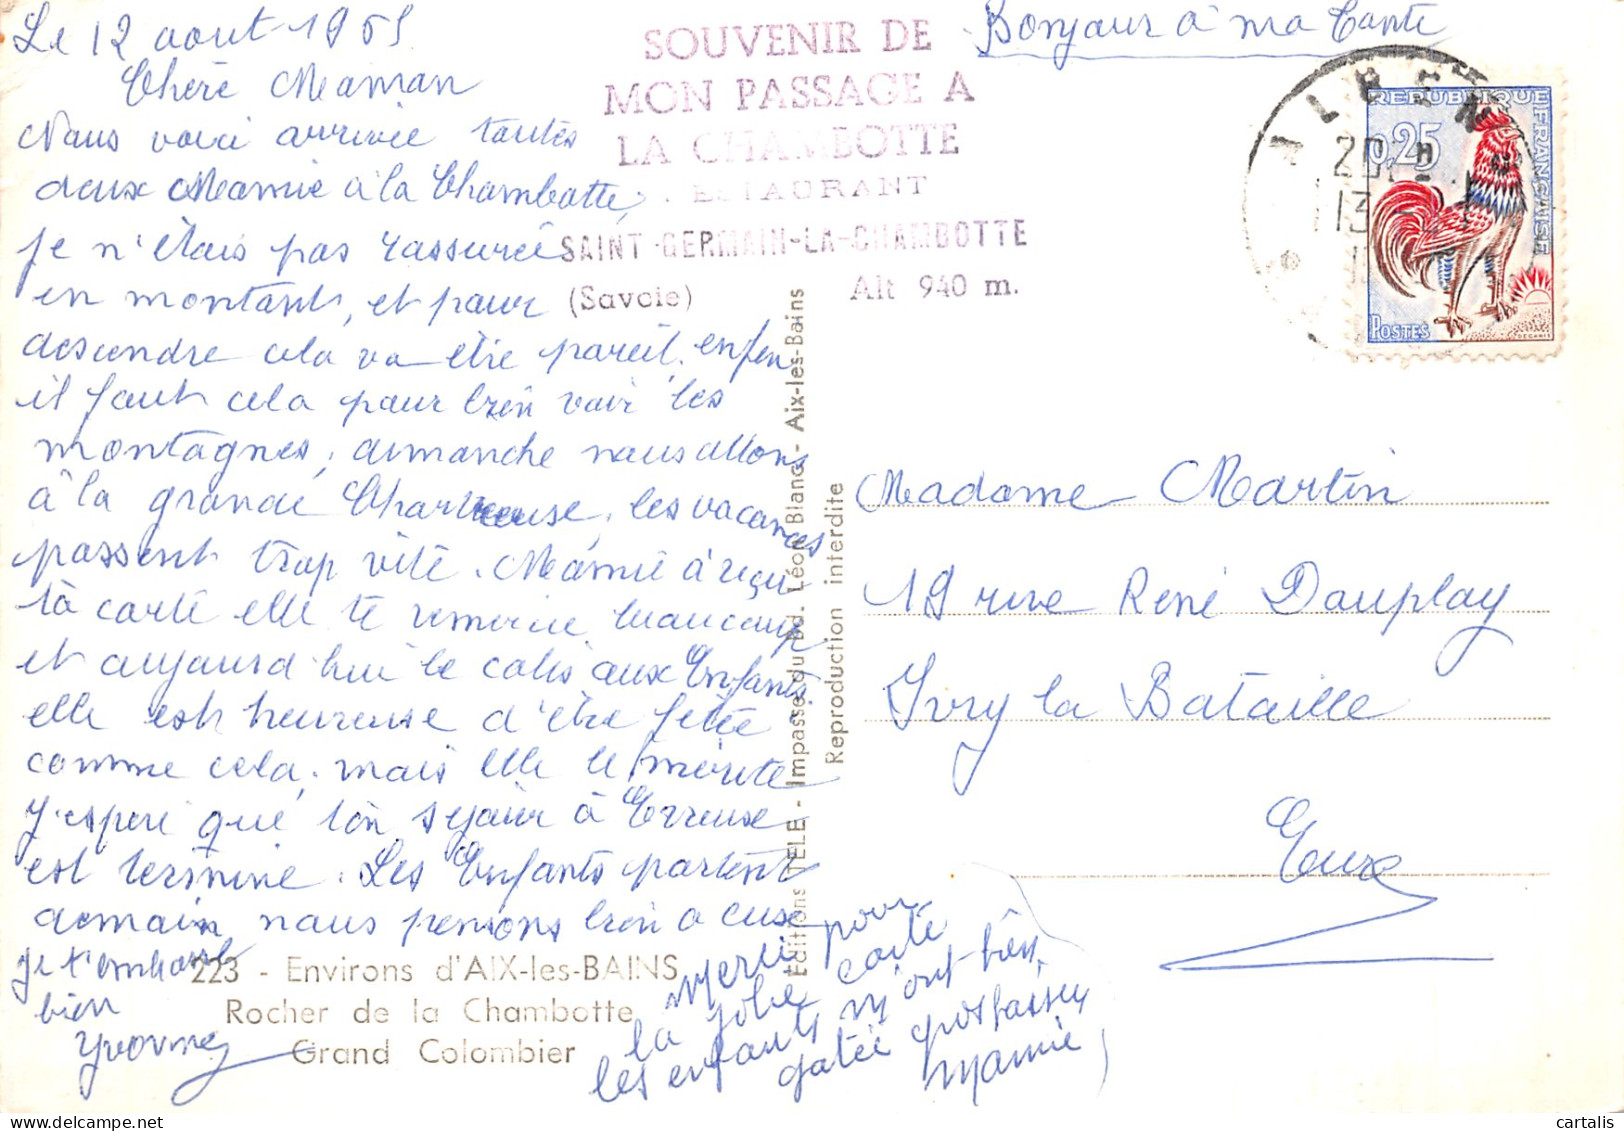 Le 12 aout 1965
Chère Maman
Nous voici arrivée toutes
deux Mamie à la Chambotte,
je n'étais pas rassurée
en montant, et pour
descendre cela va être pareil, enfin
il faut cela pour bien voir les
montagnes, dimanche nous allons
à la grande Chartreuse, les vacances
passent trop vite. Mamie à reçu
ta carte elle te remercie beaucoup
et aujourd'hui le colis aux Enfants
elle est heureuse d'être fêtée
comme cela, mais elle le mérite
J'espère que ton séjour à
est terminé. Les Enfants partent
demain nous pensons bien a eux
je t'embrasse
bien
Yvonne
Merci pour
la jolie carte
les enfants m'ont bien
gatée gros baisers
Mamie
SOUVENIR DE
MON PASSAGE A
LA CHAMBOTTE
RESTAURANT
SAINT-GERMAIN-LA-CHAMBOTTE
(Savoie) Alt 940 m.
Bonjour à ma Tante
ALBEN
REPUBLIQUE FRANÇAISE
0,25
POSTES
DECARIS
Madame Martin
19 rue René Dauplay
Ivry la Bataille
Eure
Editions TELE - Impasse du Bd. Léon Blanc - Aix-les-Bains
Reproduction interdite
223 - Environs d'AIX-les-BAINS
Rocher de la Chambotte
Grand Colombier
cartalis
www.delcampe.net